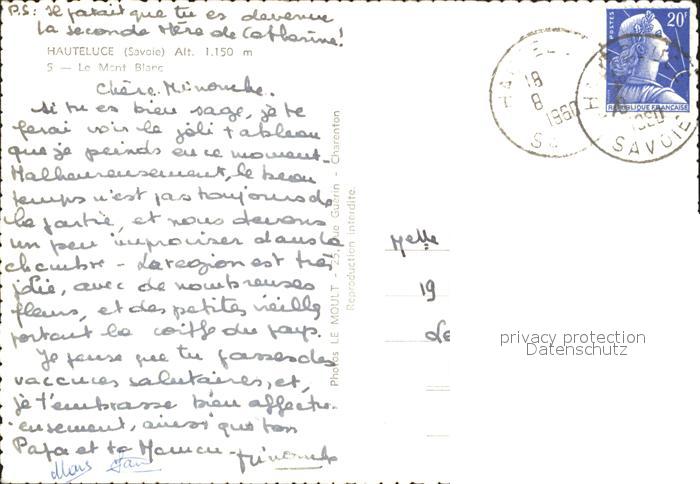 P.S: Il parait que tu es devenue
la seconde Mère de Catherine!
HAUTELUCE (Savoie) Alt. 1.150 m
5 — Le Mont Blanc
Chère Minouche.
Si tu es bien sage, je te
ferai voir le joli tableau
que je peinds en ce moment.
Malheureusement, le beau
temps n'est pas toujours de
la partie, et nous devons
un peu improviser dans la
chambre - La region est très
jolie, avec de nombreuses
fleurs, et des petites vieilles
portant la coiffe du pays.
Je pense que tu passes des
vacances salutaires, et,
je t'embrasse bien affectu-
eusement, ainsi que ton
Papa et ta Maman
Photos LE MOULT - 25, Rue Guérin - Charenton
Reproduction interdite.
POSTES 20F
REPUBLIQUE FRANÇAISE
18
8
1960
1960
SAVOIE
Melle
19
privacy protection
Datenschutz